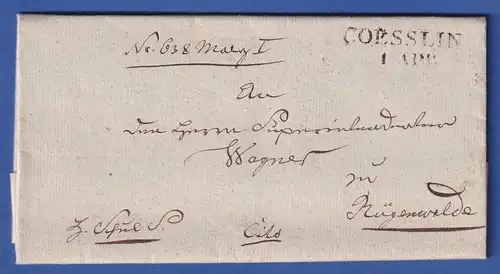 COESSLIN
1 APR.
No. 638 Malg I
An
den Herrn Superintendenten
Wagner
zu
Rügenwalde
H. Schul S.
Cito